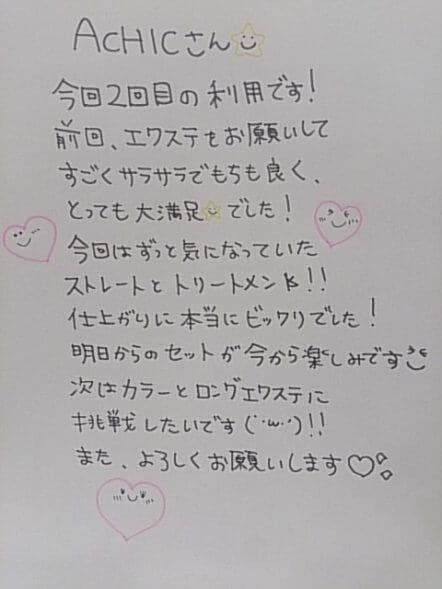 ACHICさん☆
今回2回目の利用です!
前回、エクステをお願いして
すごくサラサラでもちも良く、
とっても大満足☆でした!
今回はずっと気になっていた
ストレートとトリートメント!!
仕上がりに本当にビックリでした!
明日からのセットが今から楽しみです
次はカラーとロングエクステに
挑戦したいです(˙ω˙)!!
また、よろしくお願いします♡